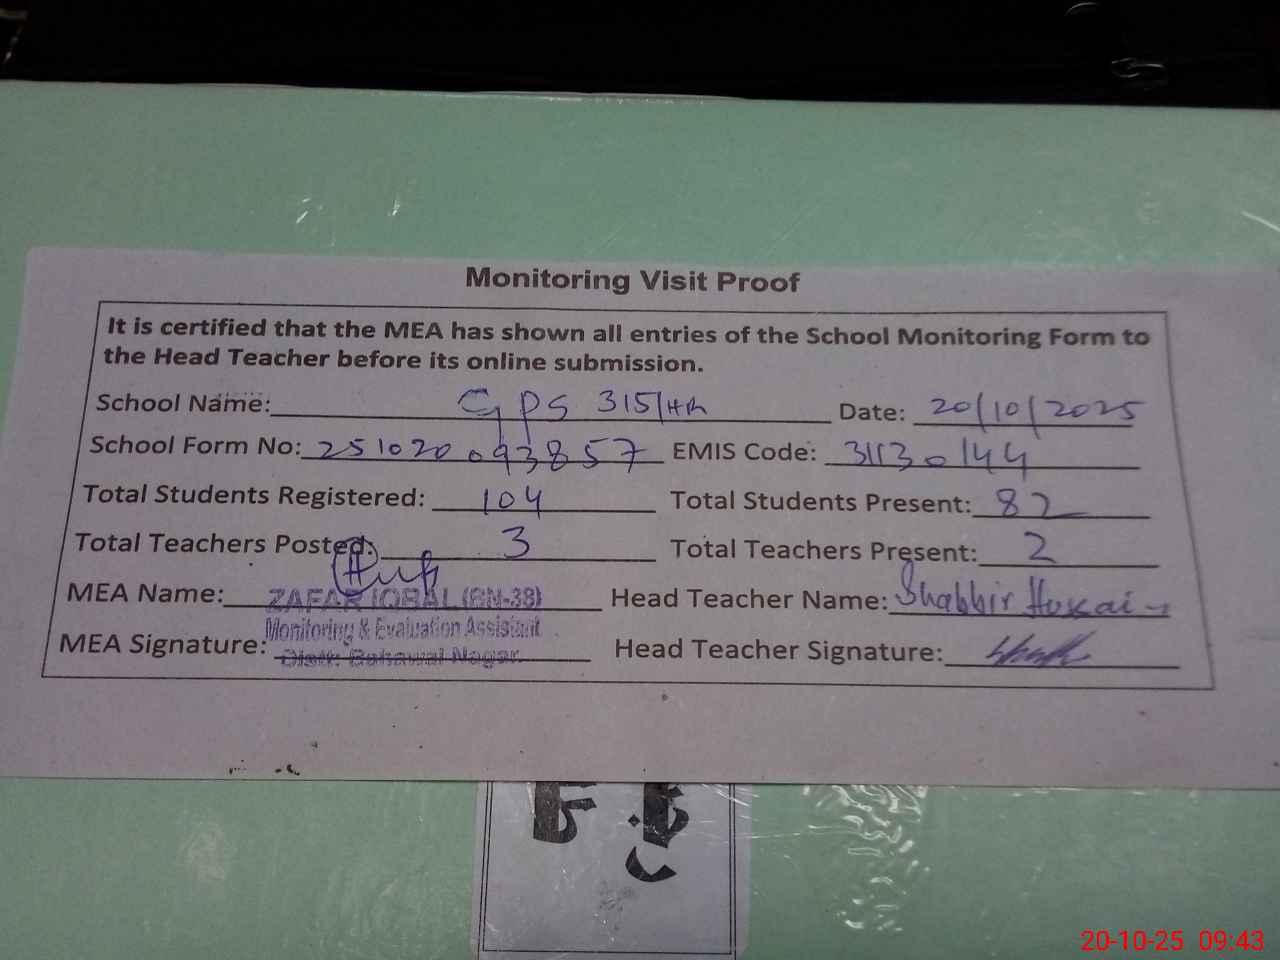 Monitoring Visit Proof
It is certified that the MEA has shown all entries of the School Monitoring Form to
the Head Teacher before its online submission.
School Name: GPS 315/HR Date: 20/10/2025
School Form No: 251020093857 EMIS Code: 31130144
Total Students Registered: 104 Total Students Present: 82
Total Teachers Posted: 3 Total Teachers Present: 2
MEA Name: ZAFAR IQBAL (BN-38) Head Teacher Name: Shabbir Hussain
MEA Signature: Monitoring & Evaluation Assistant Head Teacher Signature:
Distt: Bahawal Nagar.
20-10-25 09:43